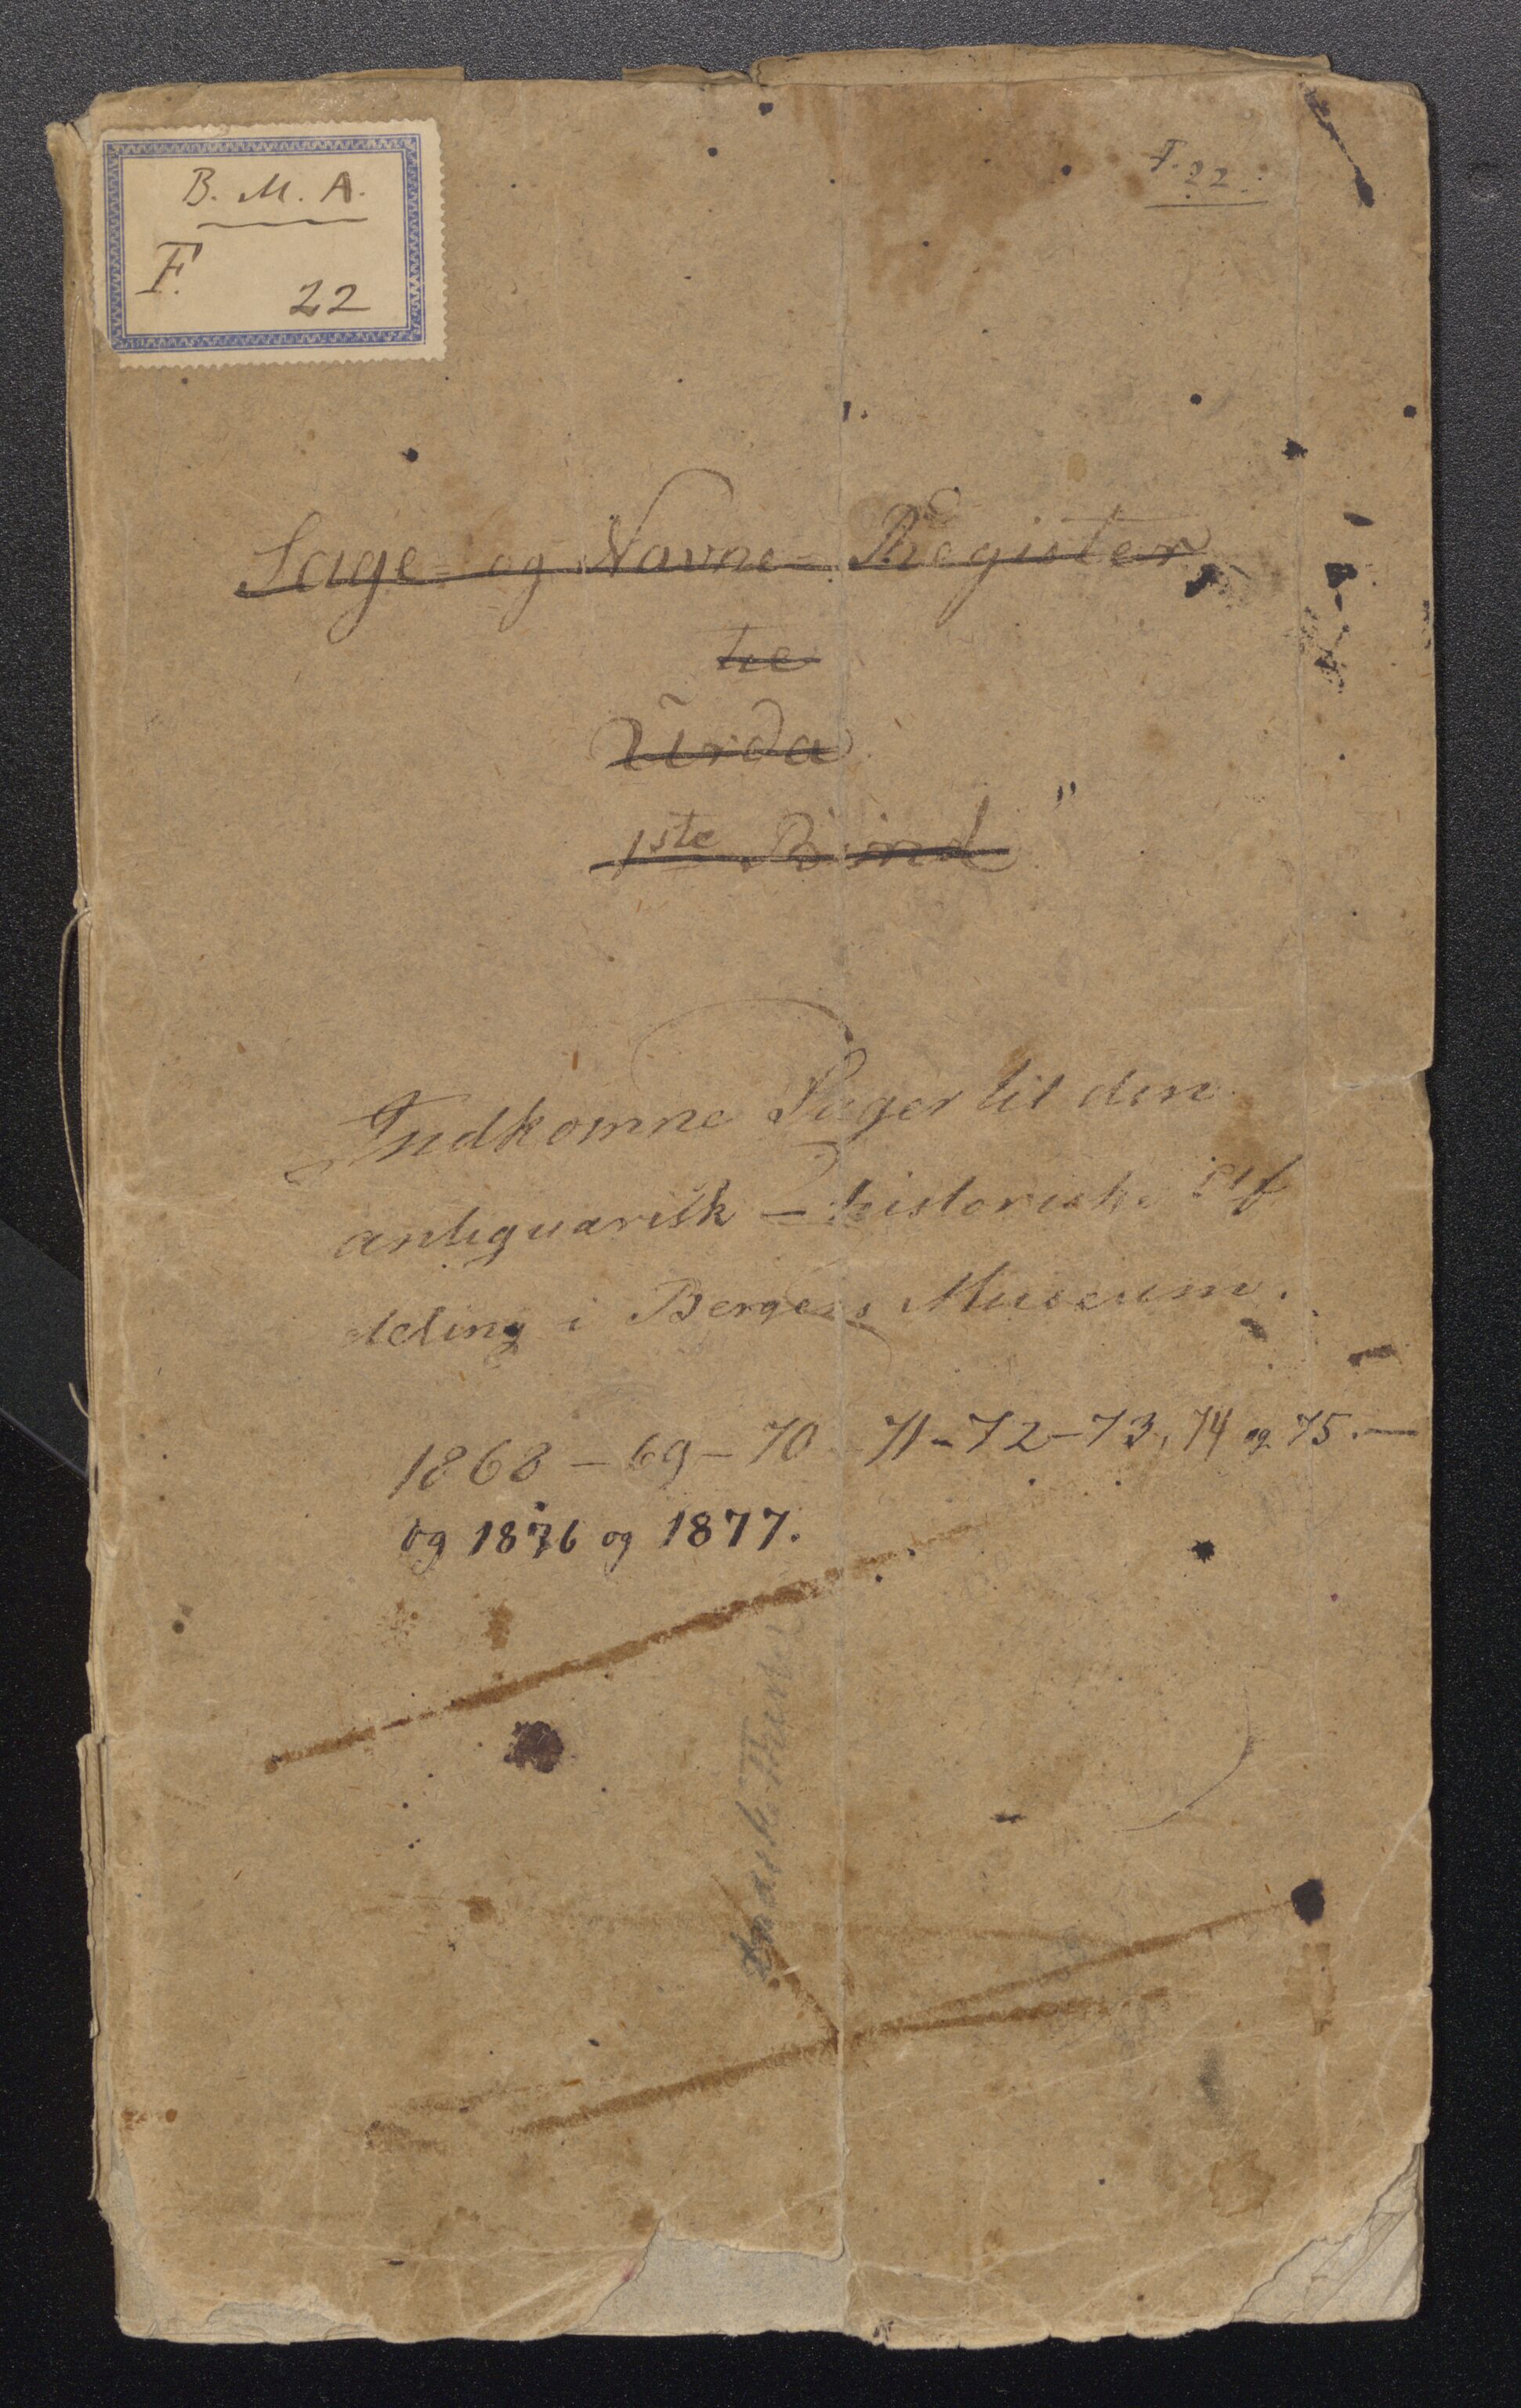 B. M. A.
F. 22
F. 22.
Sage- og Navne-Register
til
Urda
1ste Bind
Indkomne Sager til den
antiquarisk-historiske Af
deling i Bergens Museum.
1868 - 69 - 70 - 71 - 72 - 73, 74 og 75. —
og 1876 og 1877.